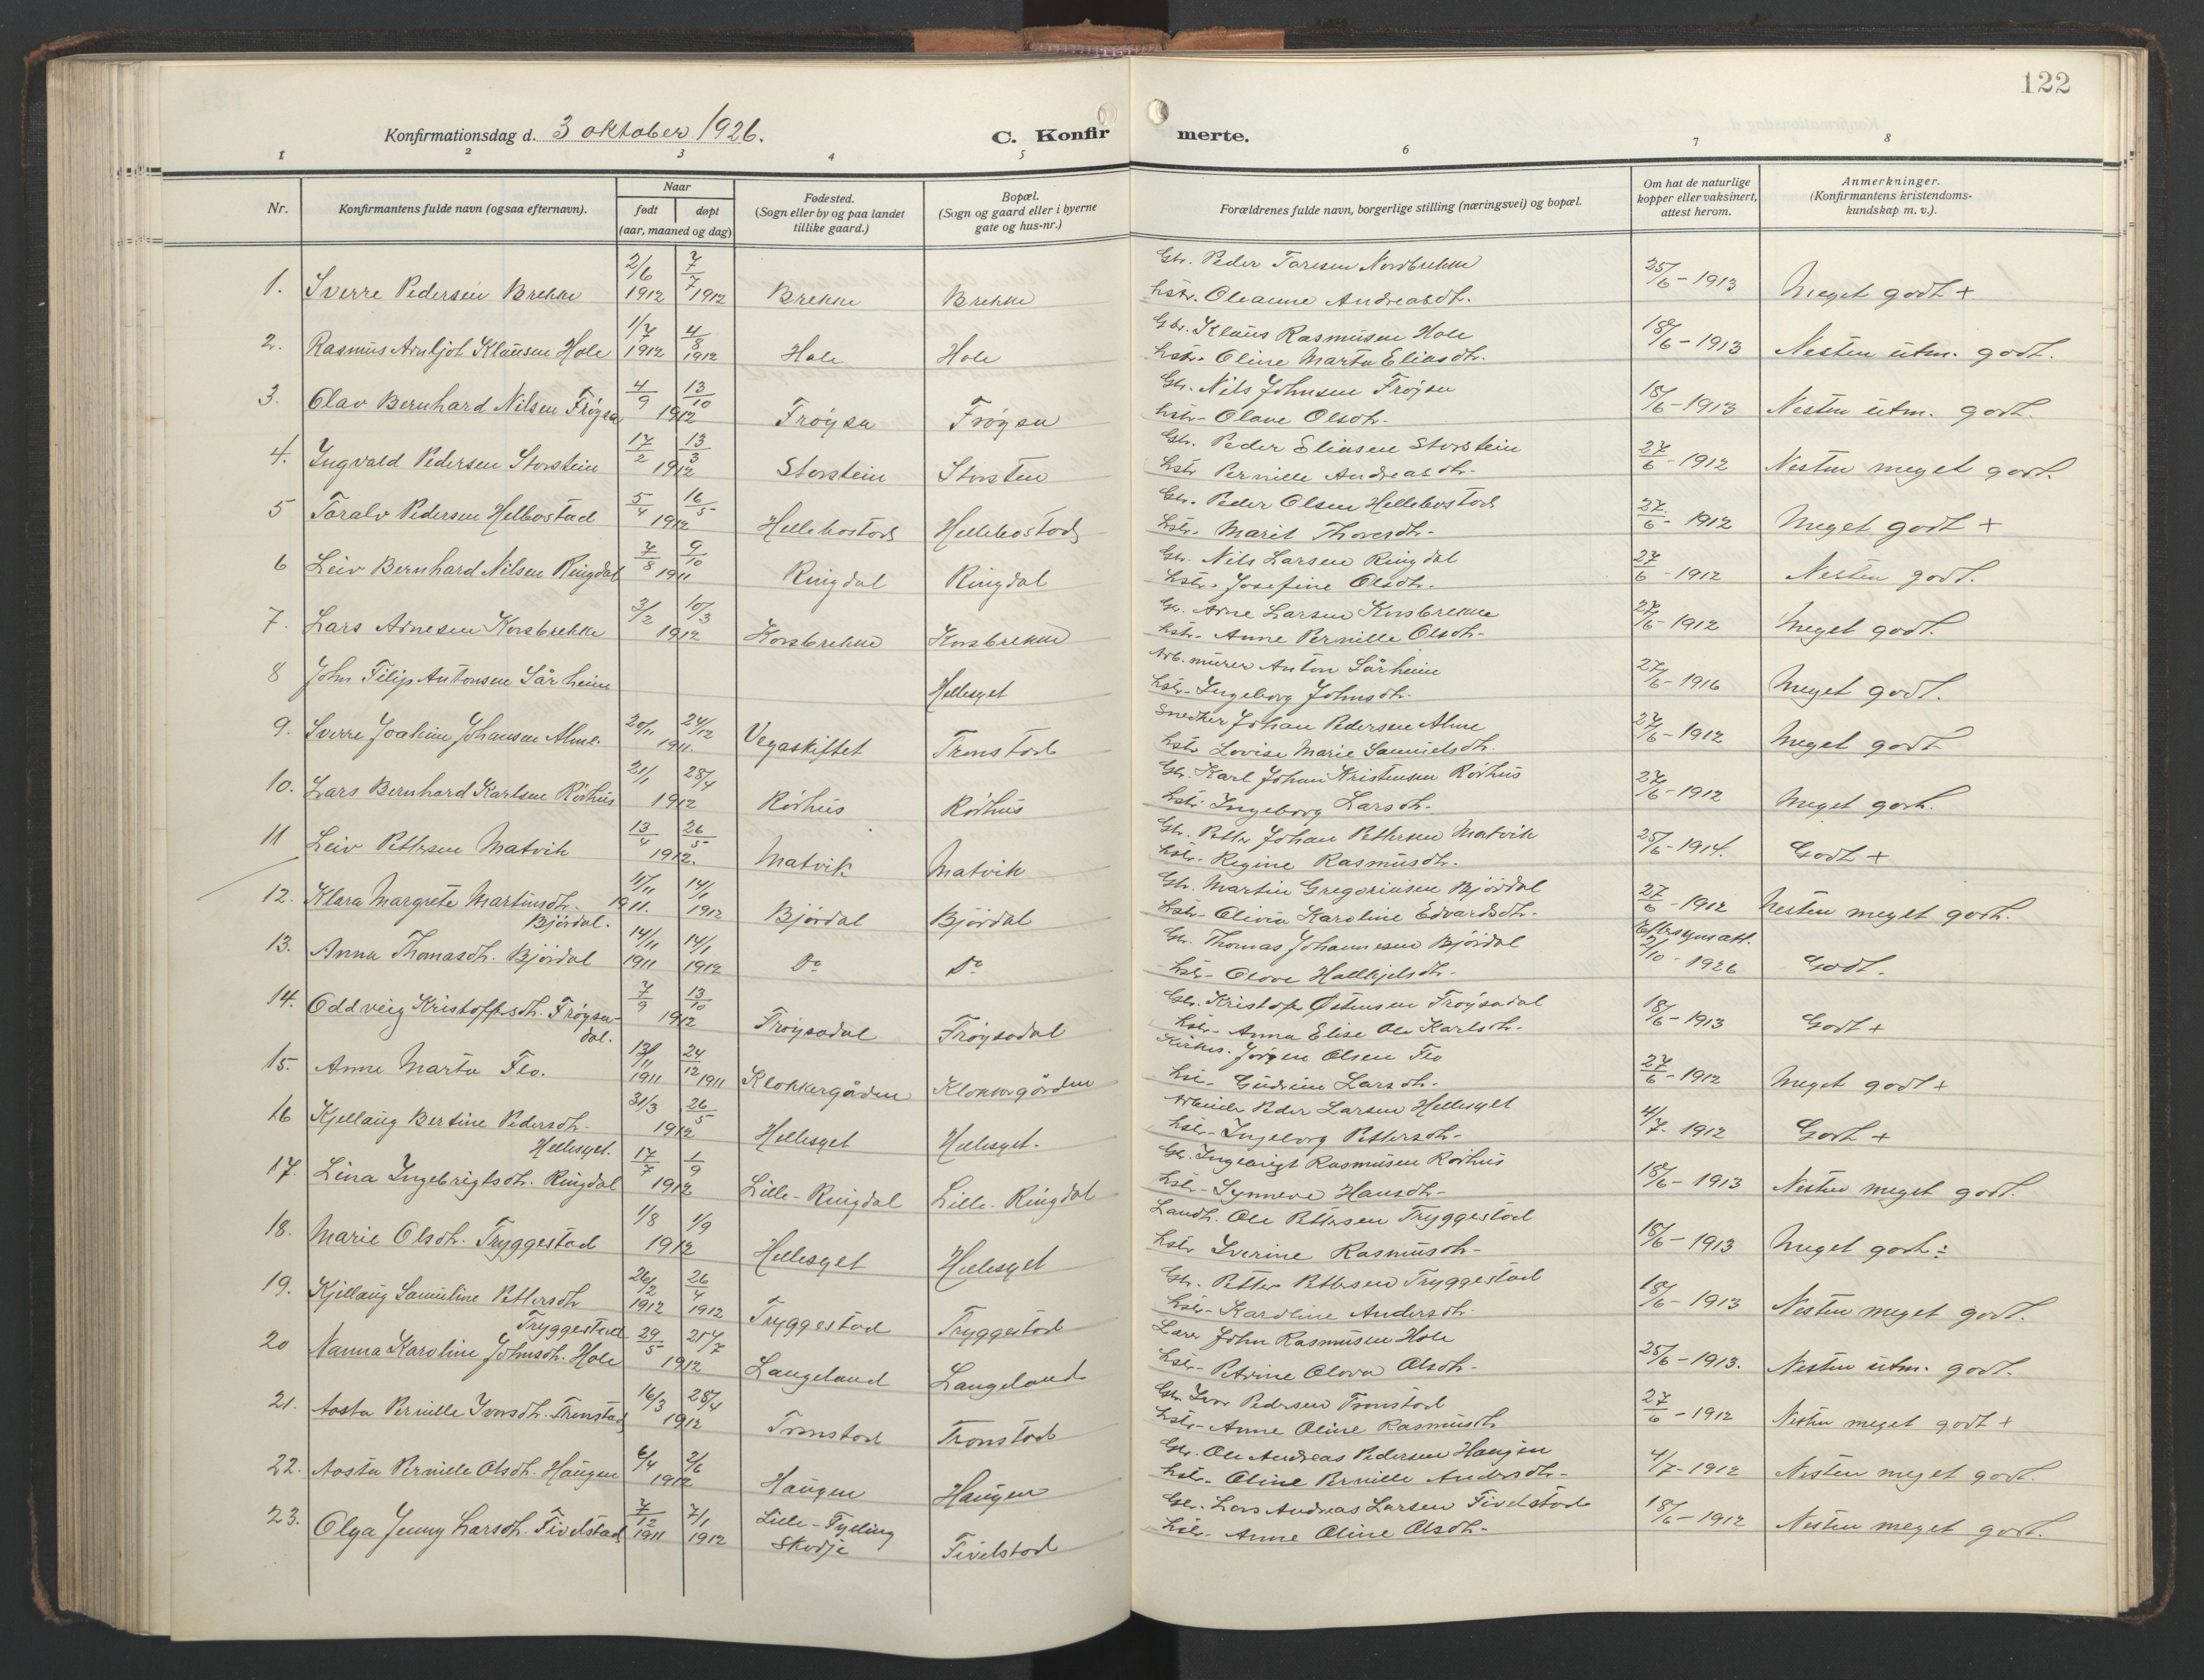 122
Konfirmationsdag d. 3 oktober 1926.
C. Konfirmerte.
1 2 3 4 5 6 7 8
Nr.
Konfirmantens fulde navn (ogsaa efternavn).
Naar
født døpt
(aar, maaned og dag)
Fødested.
(Sogn eller by og paa landet
tillike gaard.)
Bopæl.
(Sogn og gaard eller i byerne
gate og hus-nr.)
Forældrenes fulde navn, borgerlige stilling (næringsvei) og bopæl.
Om hat de naturlige
kopper eller vaksinert,
attest herom.
Anmerkninger.
(Konfirmantens kristendoms-
kundskap m. v.).
1. Sverre Pedersen Brekke 2/6 1912 7/7 1912 Brekke Brekke Gbr. Peder Taresen Nordbrekke 25/6 - 1913 Meget godt +
hstr. Oleanne Andreasdtr.
2. Rasmus Arnljot Klausen Hole 1/7 1912 4/8 1912 Hole Hole Gbr. Klaus Rasmusen Hole 18/6 - 1913 Nesten utm. godt.
hstr. Oline Marta Eliasdtr.
3. Olav Bernhard Nilsen Frøysa 4/9 13/10 1912 Frøysa Frøysa Gbr. Nils Johnsen Frøysa 18/6 - 1913 Nesten utm. godt.
hstr. Olave Olsdtr.
4. Ingvald Pedersen Storstein 17/2 13/3 1912 Storstein Storsten Gbr. Peder Eliasen Storstein 27/6 - 1912 Nesten meget godt.
hstr. Pernille Andreasdtr.
5 Toralv Pedersen Helbostad 5/4 16/5 1912 Hellebostad Hellebostad Gbr. Peder Olsen Hellebostad 27/6 - 1912 Meget godt +
hstr. Marit Thoresdtr.
6 Leiv Bernhard Nilsen Ringdal 7/8 9/10 1911 Ringdal Ringdal Gbr. Nils Larsen Ringdal 27/6 - 1912 Nesten godt.
hstr. Josefine Olsdtr.
7. Lars Arnesen Korsbrekke 3/2 10/3 1912 Korsbrekke Korsbrekke Gbr. Arne Larsen Korsbrekke 27/6 - 1912 Meget godt.
hstr. Anne Pernille Olsdtr.
8 John Filip Antonsen Sårheim Hellesylt Arb. murer Anton Sårheim 27/6 - 1916 Meget godt.
hstr. Ingeborg Johnsdtr.
9. Sverre Joakim Johansen Alme. 20/11 24/12 1911. Vegaskiftet Tronstad Snedker Johan Pedersen Alme 27/6 - 1912 Meget godt
hstr. Lovise Marie Samuelsdtr.
10. Lars Bernhard Karlsen Rødhus 21/1 28/4 1912 Rødhus Rødhus Gbr. Karl Johan Kristensen Rødhus 27/6 - 1912 Meget godt.
hstr. Ingeborg Larsdtr.
11 Leiv Pettersen Matvik 13/4 26/5 1912. Matvik Matvik Gbr. Petter Johan Pettersen Matvik 25/6 - 1914. Godt +
hstr. Regine Rasmusdtr.
12. Klara Margrete Martinsdtr. 11/11 1911. 14/1 1912 Bjørdal Bjørdal Gbr. Martin Gregoriusen Bjørdal 27/6 - 1912 Nesten meget godt.
Bjørdal. hstr. Olivia Karoline Edvardsdtr.
13. Anna Thomasdtr. Bjørdal 14/11 1911 14/1 1912 Do Do Gbr. Thomas Johannesen Bjørdal Eftersynsatt. 2/10 - 1926 Godt.
hstr. Olove Hallkjelsdtr.
14. Oddveig Kristoffersdtr. Frøysa- 7/9 13/10 1912 Frøysadal Frøysadal Gbr. Kristofer Østensen Frøysadal 18/6 - 1913 Godt +
dal. hstr. Anna Elise Ole Karlsdtr.
15. Anne Marta Flo. 13/11 1911 24/12 1911 Klokkergården Klokkergården Kirkes. Jørgen Olsen Flo 27/6 - 1912 Meget godt +
hu. Gudrine Larsdtr.
16 Kjellaug Bertine Pedersdtr. 31/3 26/5 1912 Hellesylt Hellesylt. Arbeider Peder Larsen Hellesylt 4/7 - 1912 Godt +
Hellesylt. hstr. Ingeborg Pettersdtr.
17. Lina Ingebrigtsdtr. Ringdal 17/7 1/9 1912 Lille-Ringdal Lille-Ringdal Gbr. Ingebrigt Rasmusen Rødhus 18/6 - 1913 Nesten meget godt.
hstr. Synneve Hansdtr.
18. Marie Olsdtr. Tryggestad 1/8 1/9 1912 Hellesylt Hellesylt Landh. Ole Pettersen Tryggestad 18/6 - 1913 Meget godt ÷
hstr. Iverine Rasmusdtr.
19. Kjellaug Samuline Pettersdtr 26/2 1912 26/4 1912 Tryggestad Tryggestad Gbr. Petter Pettersen Tryggestad 18/6 - 1913 Nesten meget godt.
Tryggestad hstr. Karoline Andersdtr.
20 Nanna Karoline Johnsdtr. Hole 29/5 25/7 1912 Langeland Langeland Lærer John Rasmusen Hole 25/6 - 1913. Nesten utm. godt.
hstr. Petrine Olova Olsdtr.
21. Aasta Pernille Ivarsdtr. Tronstad 16/3 28/4 1912 Tronstad Tronstad Gbr. Ivar Pedersen Tronstad 27/6 - 1912 Nesten meget godt +
hstr. Anne Oline Rasmusdtr
22. Aasta Pernille Olsdtr. Haugen 6/4 2/6 1912 Haugen Haugen Gbr. Ole Andreas Pedersen Haugen 4/7 - 1912 Nesten meget godt.
hstr. Oline Pernille Andersdtr.
23. Olga Jenny Larsdtr. Fivelstad 7/12 1911 7/1 1912 Lille-Fyling Skodje Fivelstad Gbr. Lars Andreas Larsen Fivelstad 18/6 - 1912 Nesten meget godt.
hstr. Anne Oline Olsdtr.